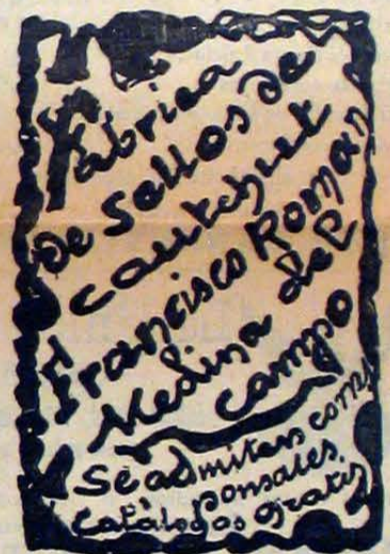 Fabrica
de Sellos de
cautchuet
Francisco Roman
Medina del
campo
Se admiten corres
ponsales.
Catálogos gratis